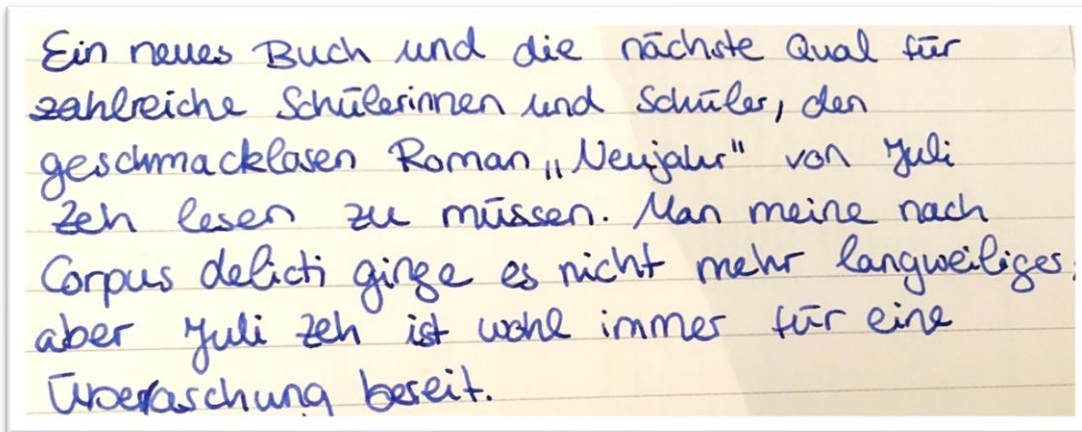 Ein neues Buch und die nächste Qual für
zahlreiche Schülerinnen und Schüler, den
geschmacklosen Roman „Neujahr" von Juli
Zeh lesen zu müssen. Man meine nach
Corpus delicti ginge es nicht mehr langweiliger,
aber Juli Zeh ist wohl immer für eine
Überraschung bereit.